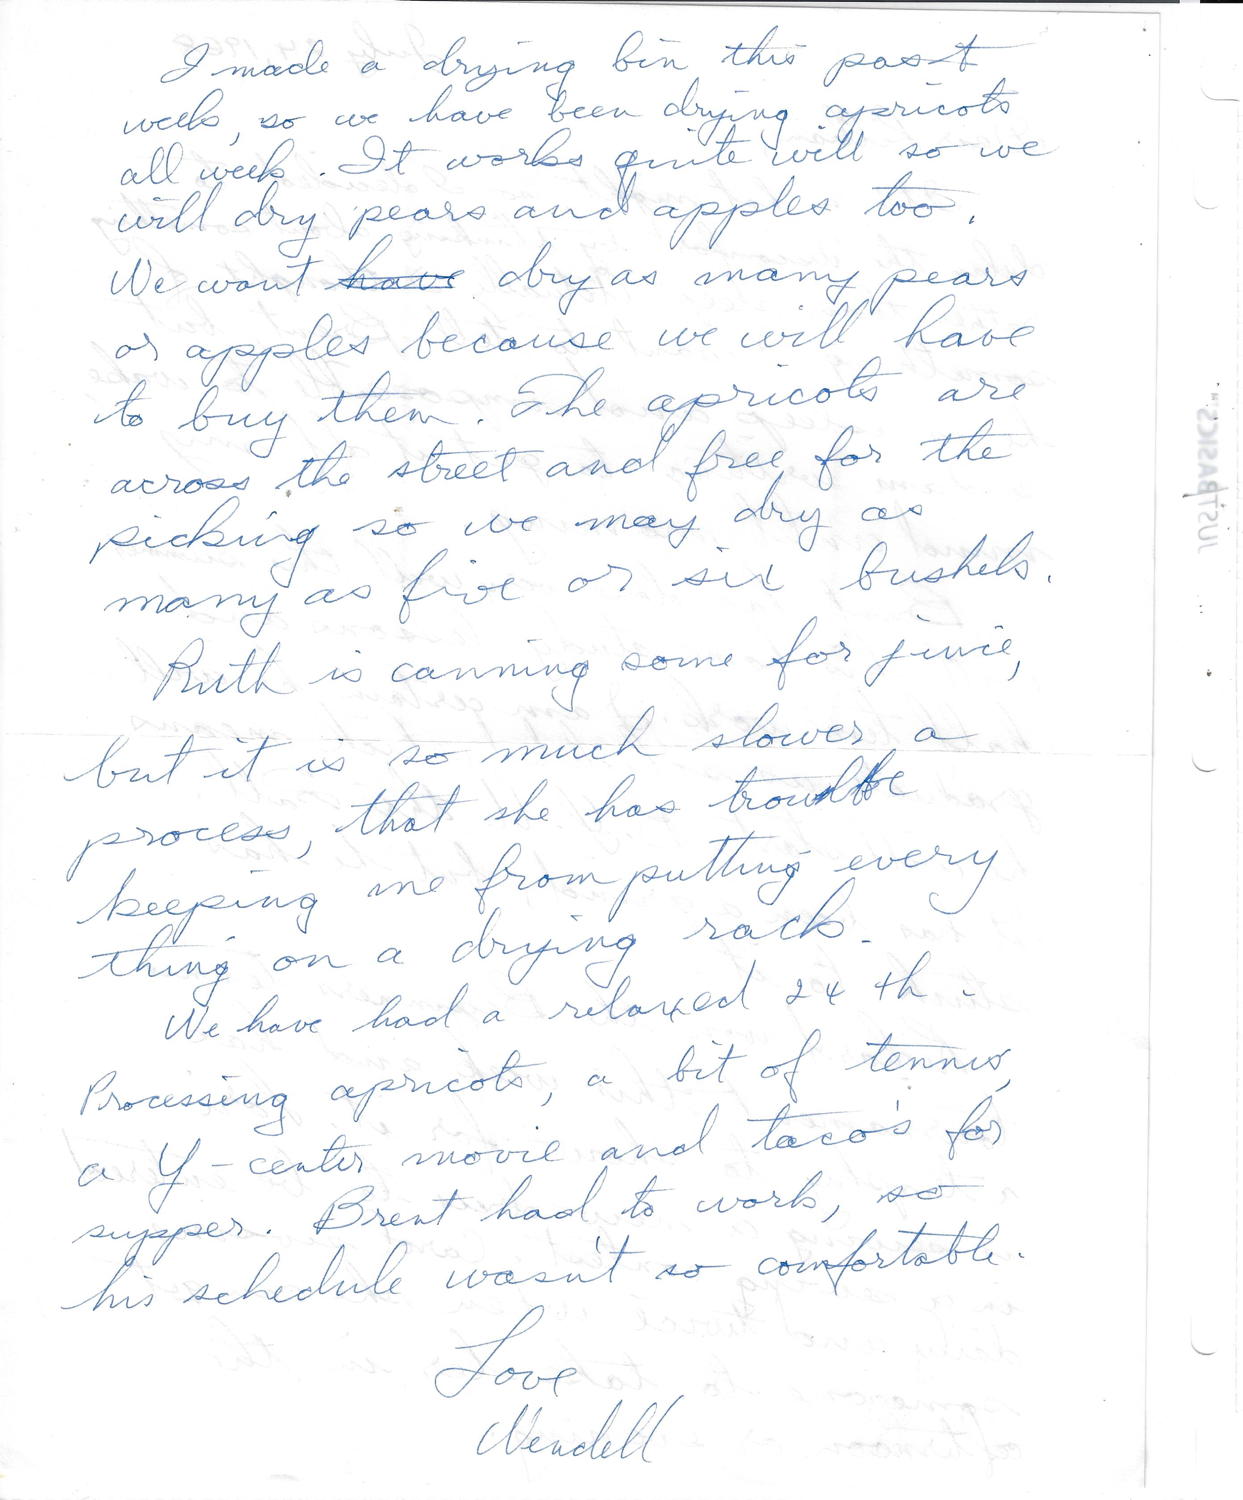 I made a drying bin this past
week, so we have been drying apricots
all week. It works quite will so we
will dry pears and apples too.
We wont have dry as many pears
or apples because we will have
to buy them. The apricots are
across the street and free for the
picking so we may dry as
many as five or six bushels.
Ruth is canning some for juice,
but it is so much slower a
process, that she has trouble
keeping me from putting every
thing on a drying rack.
We have had a relaxed 24th.
Processing apricots, a bit of tennis,
a Y-center movie and taco's for
supper. Brent had to work, so
his schedule wasn't so comfortable.
Love
Wendell
JUST BASICS™